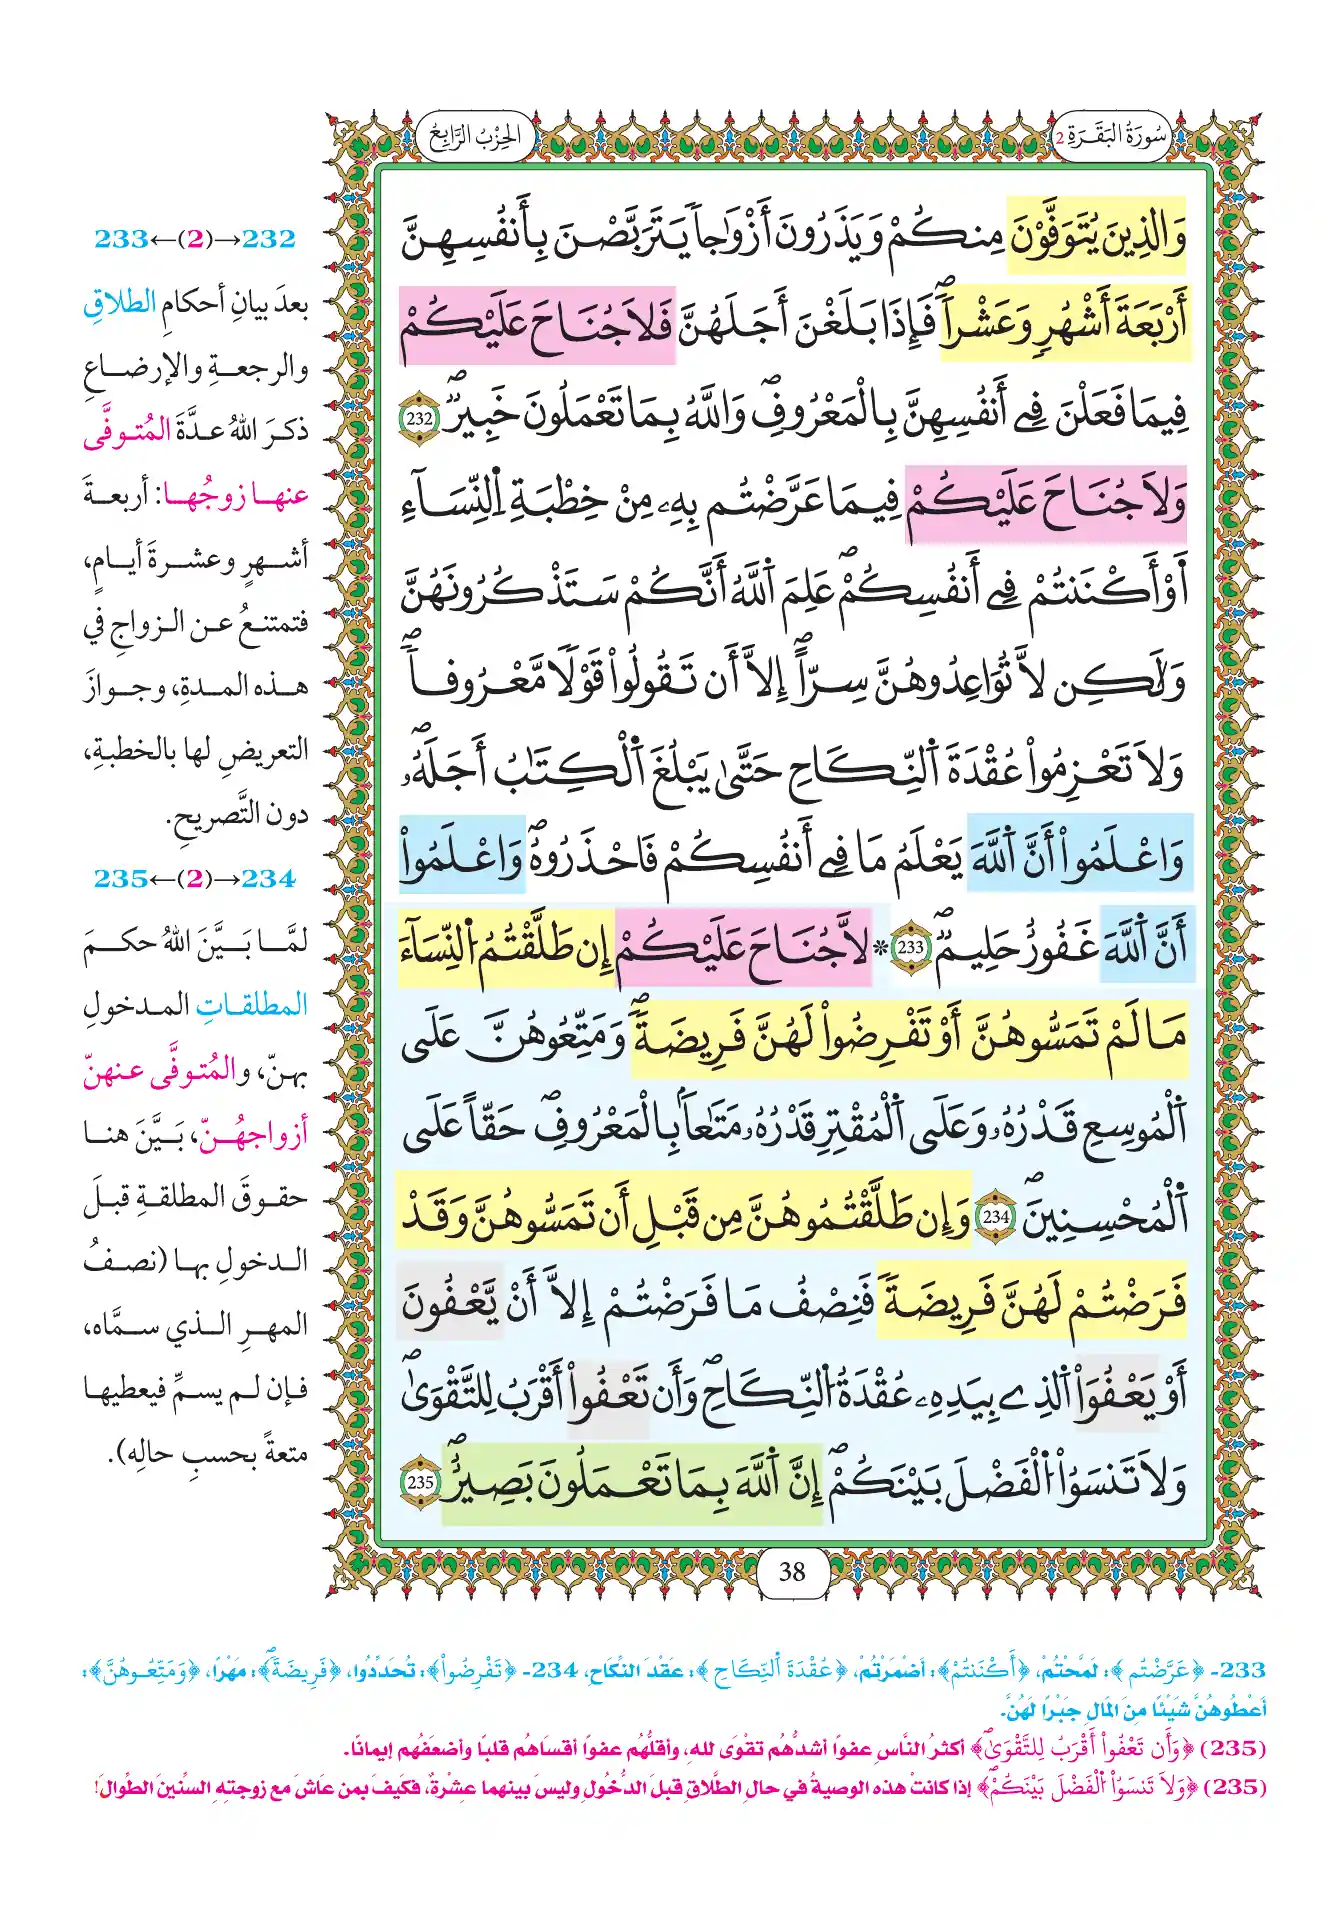 سُورَةُ البَقَرَةِ 2
الحِزْبُ الرَّابِعُ
وَالذِينَ يُتَوَفَّوْنَ مِنكُمْ وَيَذَرُونَ أَزْوَٰجاٗ يَتَرَبَّصْنَ بِأَنفُسِهِنَّ
أَرْبَعَةَ أَشْهُرٖ وَعَشْراٗۖ فَإِذَا بَلَغْنَ أَجَلَهُنَّ فَلَا جُنَاحَ عَلَيْكُمْ
فِيمَا فَعَلْنَ فِے أَنفُسِهِنَّ بِالْمَعْرُوفِۖ وَاللَّهُ بِمَا تَعْمَلُونَ خَبِيرٞۖ 232
وَلَا جُنَاحَ عَلَيْكُمْ فِيمَا عَرَّضْتُم بِهِۦ مِنْ خِطْبَةِ اِ۬لنِّسَآءِ
اَ۬وْ أَكْنَنتُمْ فِے أَنفُسِكُمْۖ عَلِمَ اَ۬للَّهُ أَنَّكُمْ سَتَذْكُرُونَهُنَّ
وَلَٰكِن لَّا تُوَاعِدُوهُنَّ سِرّاًۖ إِلَّا أَن تَقُولُواْ قَوْلاٗ مَّعْرُوفاٗۖ
وَلَا تَعْزِمُواْ عُقْدَةَ اَ۬لنِّكَاحِ حَتَّىٰ يَبْلُغَ اَ۬لْكِتَٰبُ أَجَلَهُۥۖ
وَاعْلَمُواْ أَنَّ اَ۬للَّهَ يَعْلَمُ مَا فِے أَنفُسِكُمْ فَاحْذَرُوهُۖ وَاعْلَمُواْ
أَنَّ اَ۬للَّهَ غَفُورٌ حَلِيمٞۖ 233 * لَّا جُنَاحَ عَلَيْكُمْ إِن طَلَّقْتُمُ اُ۬لنِّسَآءَ
مَا لَمْ تَمَسُّوهُنَّ أَوْ تَفْرِضُواْ لَهُنَّ فَرِيضَةٗۖ وَمَتِّعُوهُنَّ عَلَى
اَ۬لْمُوسِعِ قَدْرُهُۥ وَعَلَى اَ۬لْمُقْتِرِ قَدْرُهُۥ مَتَٰعاَۢ بِالْمَعْرُوفِۖ حَقّاً عَلَى
اَ۬لْمُحْسِنِينَۖ 234 وَإِن طَلَّقْتُمُوهُنَّ مِن قَبْلِ أَن تَمَسُّوهُنَّ وَقَدْ
فَرَضْتُمْ لَهُنَّ فَرِيضَةٗ فَنِصْفُ مَا فَرَضْتُمْ إِلَّا أَنْ يَّعْفُونَ
أَوْ يَعْفُوَاْ اَ۬لذِے بِيَدِهِۦ عُقْدَةُ اُ۬لنِّكَاحِۖ وَأَن تَعْفُواْ أَقْرَبُ لِلتَّقْوَىٰۖ
وَلَا تَنسَوُاْ اُ۬لْفَضْلَ بَيْنَكُمْۖ إِنَّ اَ۬للَّهَ بِمَا تَعْمَلُونَ بَصِيرٌۖ 235
38
232→(2)←233
بعدَ بيانِ أحكامِ الطلاقِ
والرجعةِ والإرضاعِ
ذكرَ اللهُ عدَّةَ المُتوفَّى
عنها زوجُها: أربعةَ
أشهرٍ وعشرةَ أيامٍ،
فتمتنعُ عن الزواجِ في
هذه المدةِ، وجوازَ
التعريضِ لها بالخطبةِ،
دون التَّصريحِ.
234→(2)←235
لمَّا بَيَّنَ اللهُ حكمَ
المطلقاتِ المدخولِ
بهنّ، والمُتوفَّى عنهنّ
أزواجهُنّ، بَيَّنَ هنا
حقوقَ المطلقةِ قبلَ
الدخولِ بها (نصفُ
المهرِ الذي سمَّاه،
فإن لم يسمِّ فيعطيها
متعةً بحسبِ حالِه).
233- ﴿عَرَّضْتُم﴾: لَمَّحْتُمْ، ﴿أَكْنَنتُمْ﴾: أَضْمَرْتُمْ، ﴿عُقْدَةَ اَ۬لنِّكَاحِ﴾: عَقْدَ النِّكَاحِ، 234- ﴿تَفْرِضُواْ﴾: تُحَدِّدُوا، ﴿فَرِيضَةٗۖ﴾: مَهْرًا، ﴿وَمَتِّعُوهُنَّ﴾:
أَعْطُوهُنَّ شَيْئًا مِنَ المَالِ جَبْرًا لَهُنَّ.
(235) ﴿وَأَن تَعْفُواْ أَقْرَبُ لِلتَّقْوَىٰۖ﴾ أكثرُ النَّاسِ عفوًا أشدُّهُم تقْوَى لله، وأقلُّهُم عفوًا أقسَاهُم قلبًا وأضعَفُهُم إيمانًا.
(235) ﴿وَلَا تَنسَوُاْ اُ۬لْفَضْلَ بَيْنَكُمْۖ﴾ إذا كانتْ هذه الوصيةُ في حالِ الطَّلاقِ قبلَ الدُّخُولِ وليسَ بينهما عِشْرةٌ، فكَيفَ بمن عَاشَ مع زوجتهِ السِّنينَ الطِّوالَ!